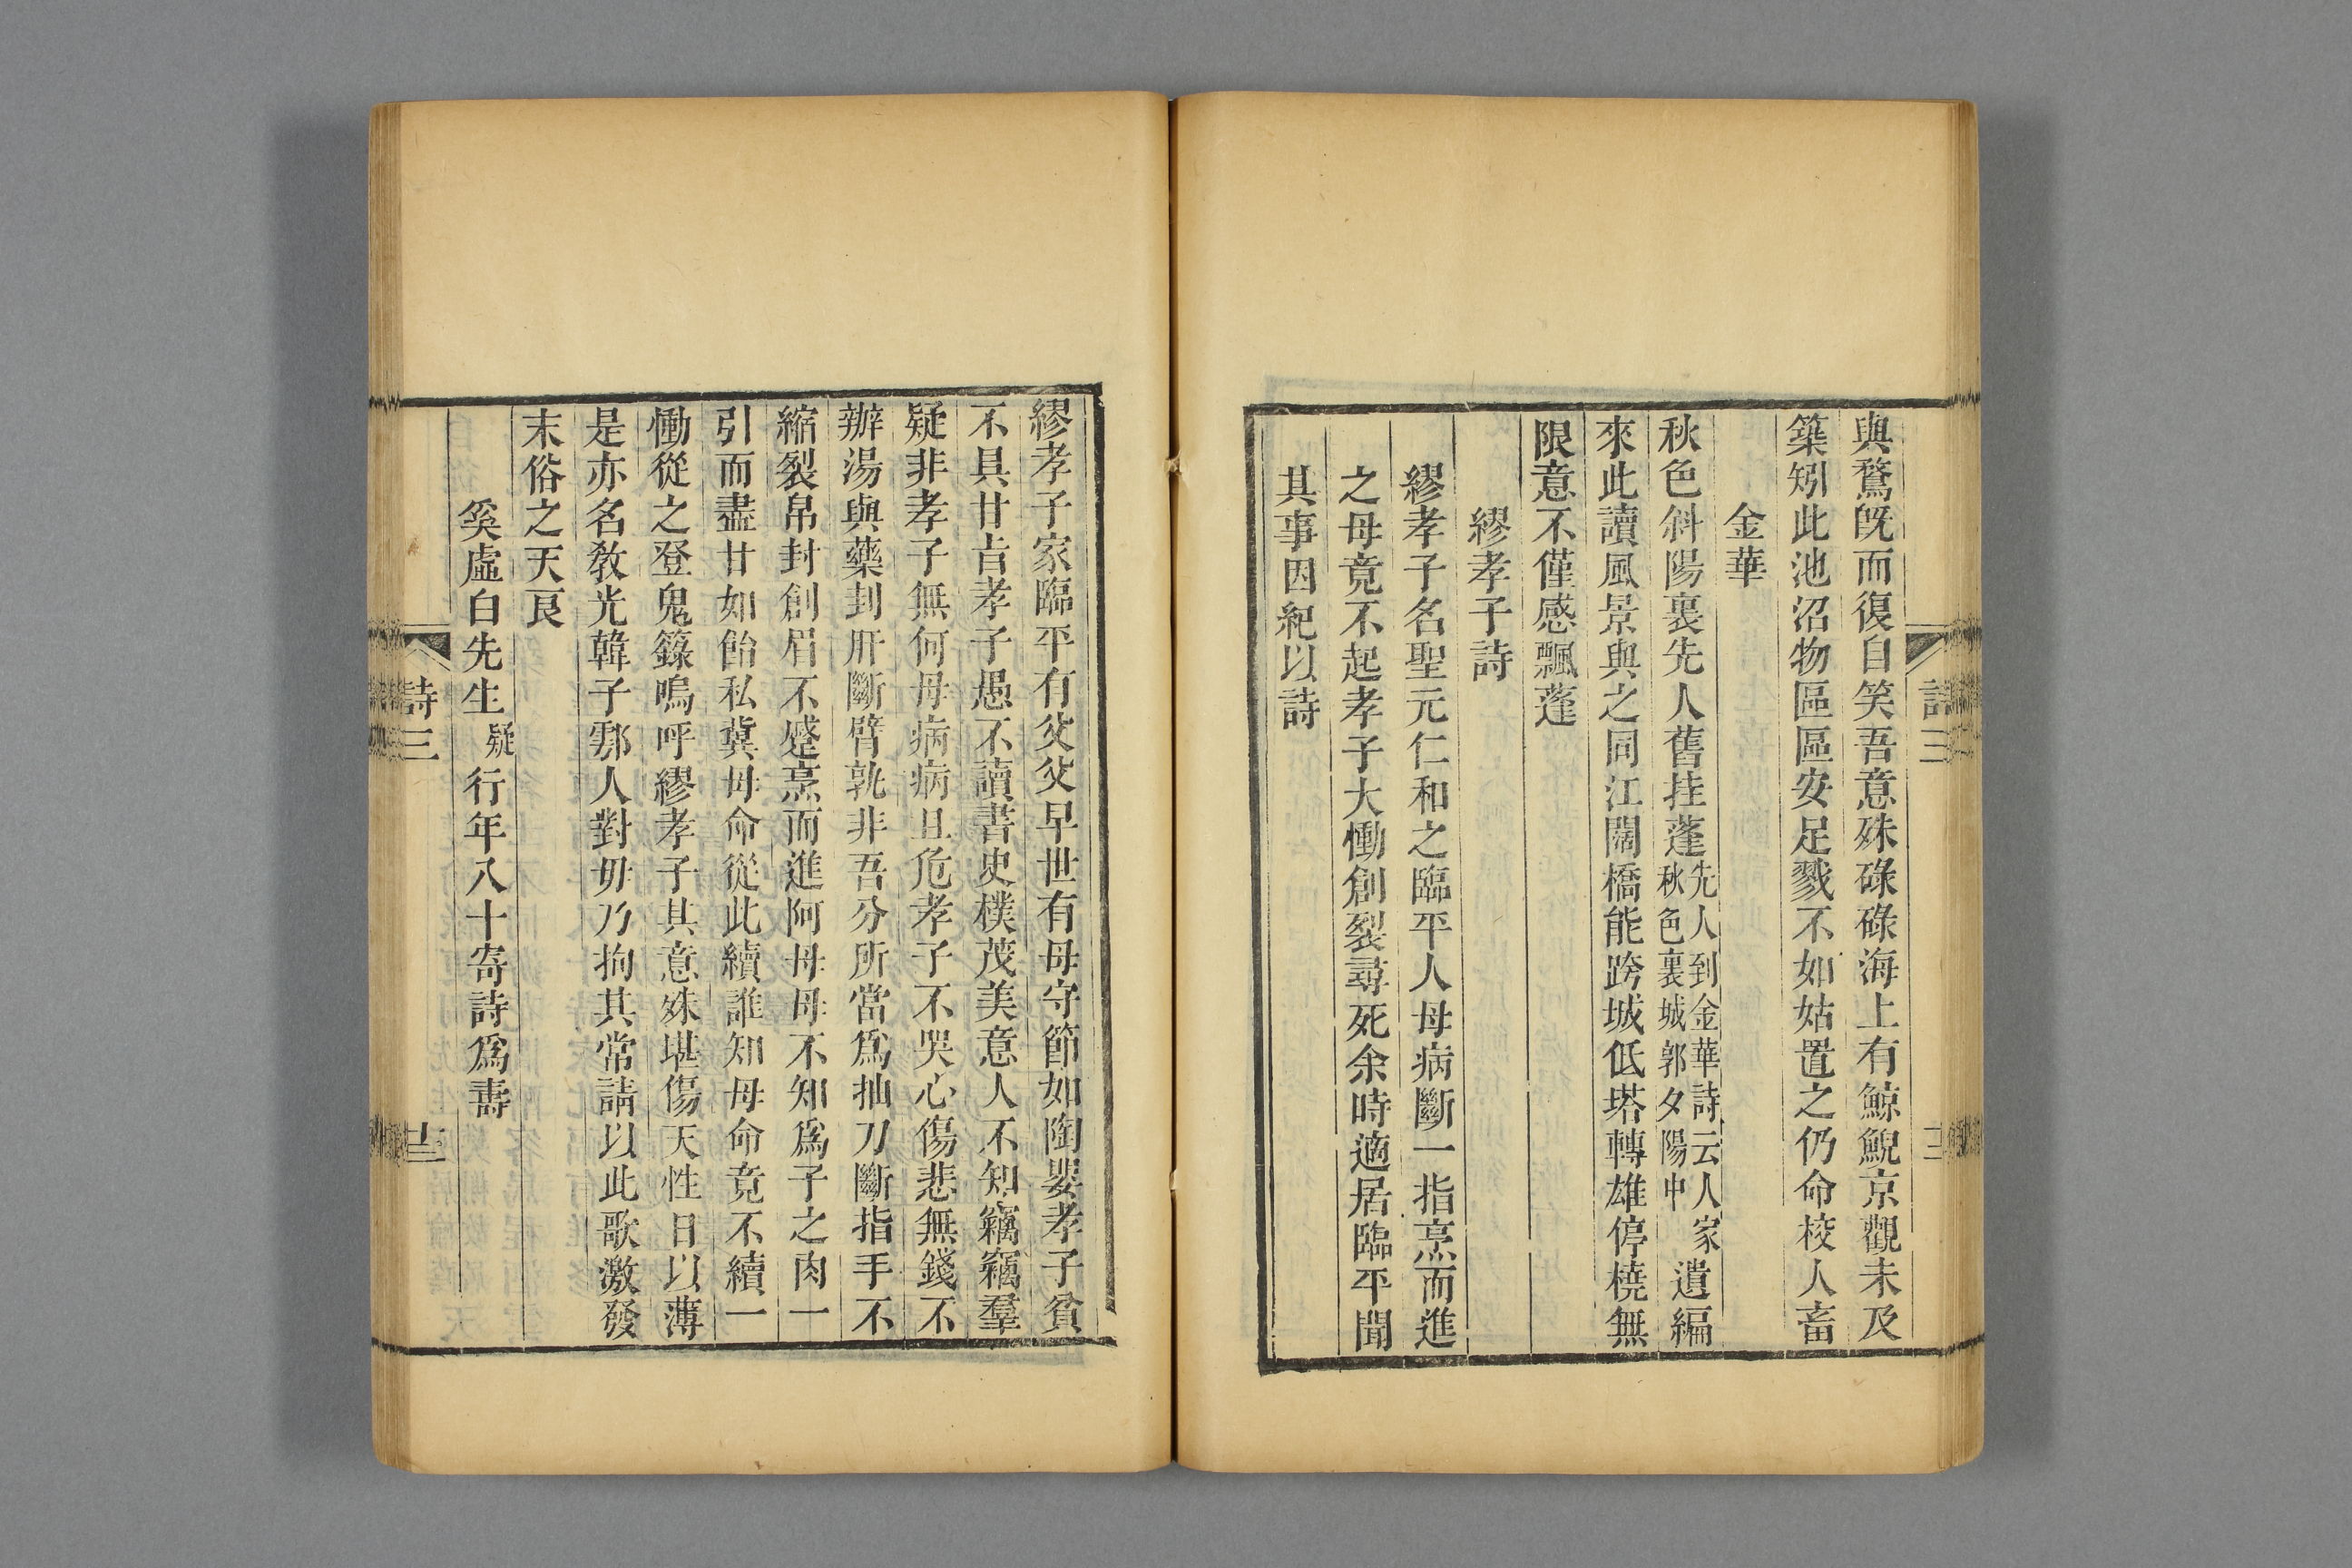 與鶩旣而復自笑吾意殊碌碌海上有鯨鯢京觀未及
築矧此池沼物區區安足戮不如姑置之仍命校人畜
金華
秋色斜陽裏先人舊挂蓬先人到金華詩云人家秋色裏城郭夕陽中遺編
來此讀風景與之同江闊橋能跨城低塔轉雄停橈無
限意不僅感飄蓬
繆孝子詩
繆孝子名聖元仁和之臨平人母病斷一指烹而進
之母竟不起孝子大慟創裂尋死余時適居臨平聞
其事因紀以詩
繆孝子家臨平有父父早世有母守節如陶嬰孝子貧
不具甘㫖孝子愚不讀書史樸茂美意人不知竊竊羣
疑非孝子無何母病病且危孝子不哭心傷悲無錢不
辦湯與藥刲肝斷臂孰非吾分所當爲抽刀斷指手不
縮裂帛封創眉不蹙烹而進阿母母不知爲子之肉一
引而盡甘如飴私冀母命從此續誰知母命竟不續一
慟從之登鬼籙嗚呼繆孝子其意殊堪傷天性日以薄
是亦名敎光韓子鄠人對毋乃拘其常請以此歌激發
末俗之天良
奚虛白先生疑行年八十寄詩爲壽
詩三
十三